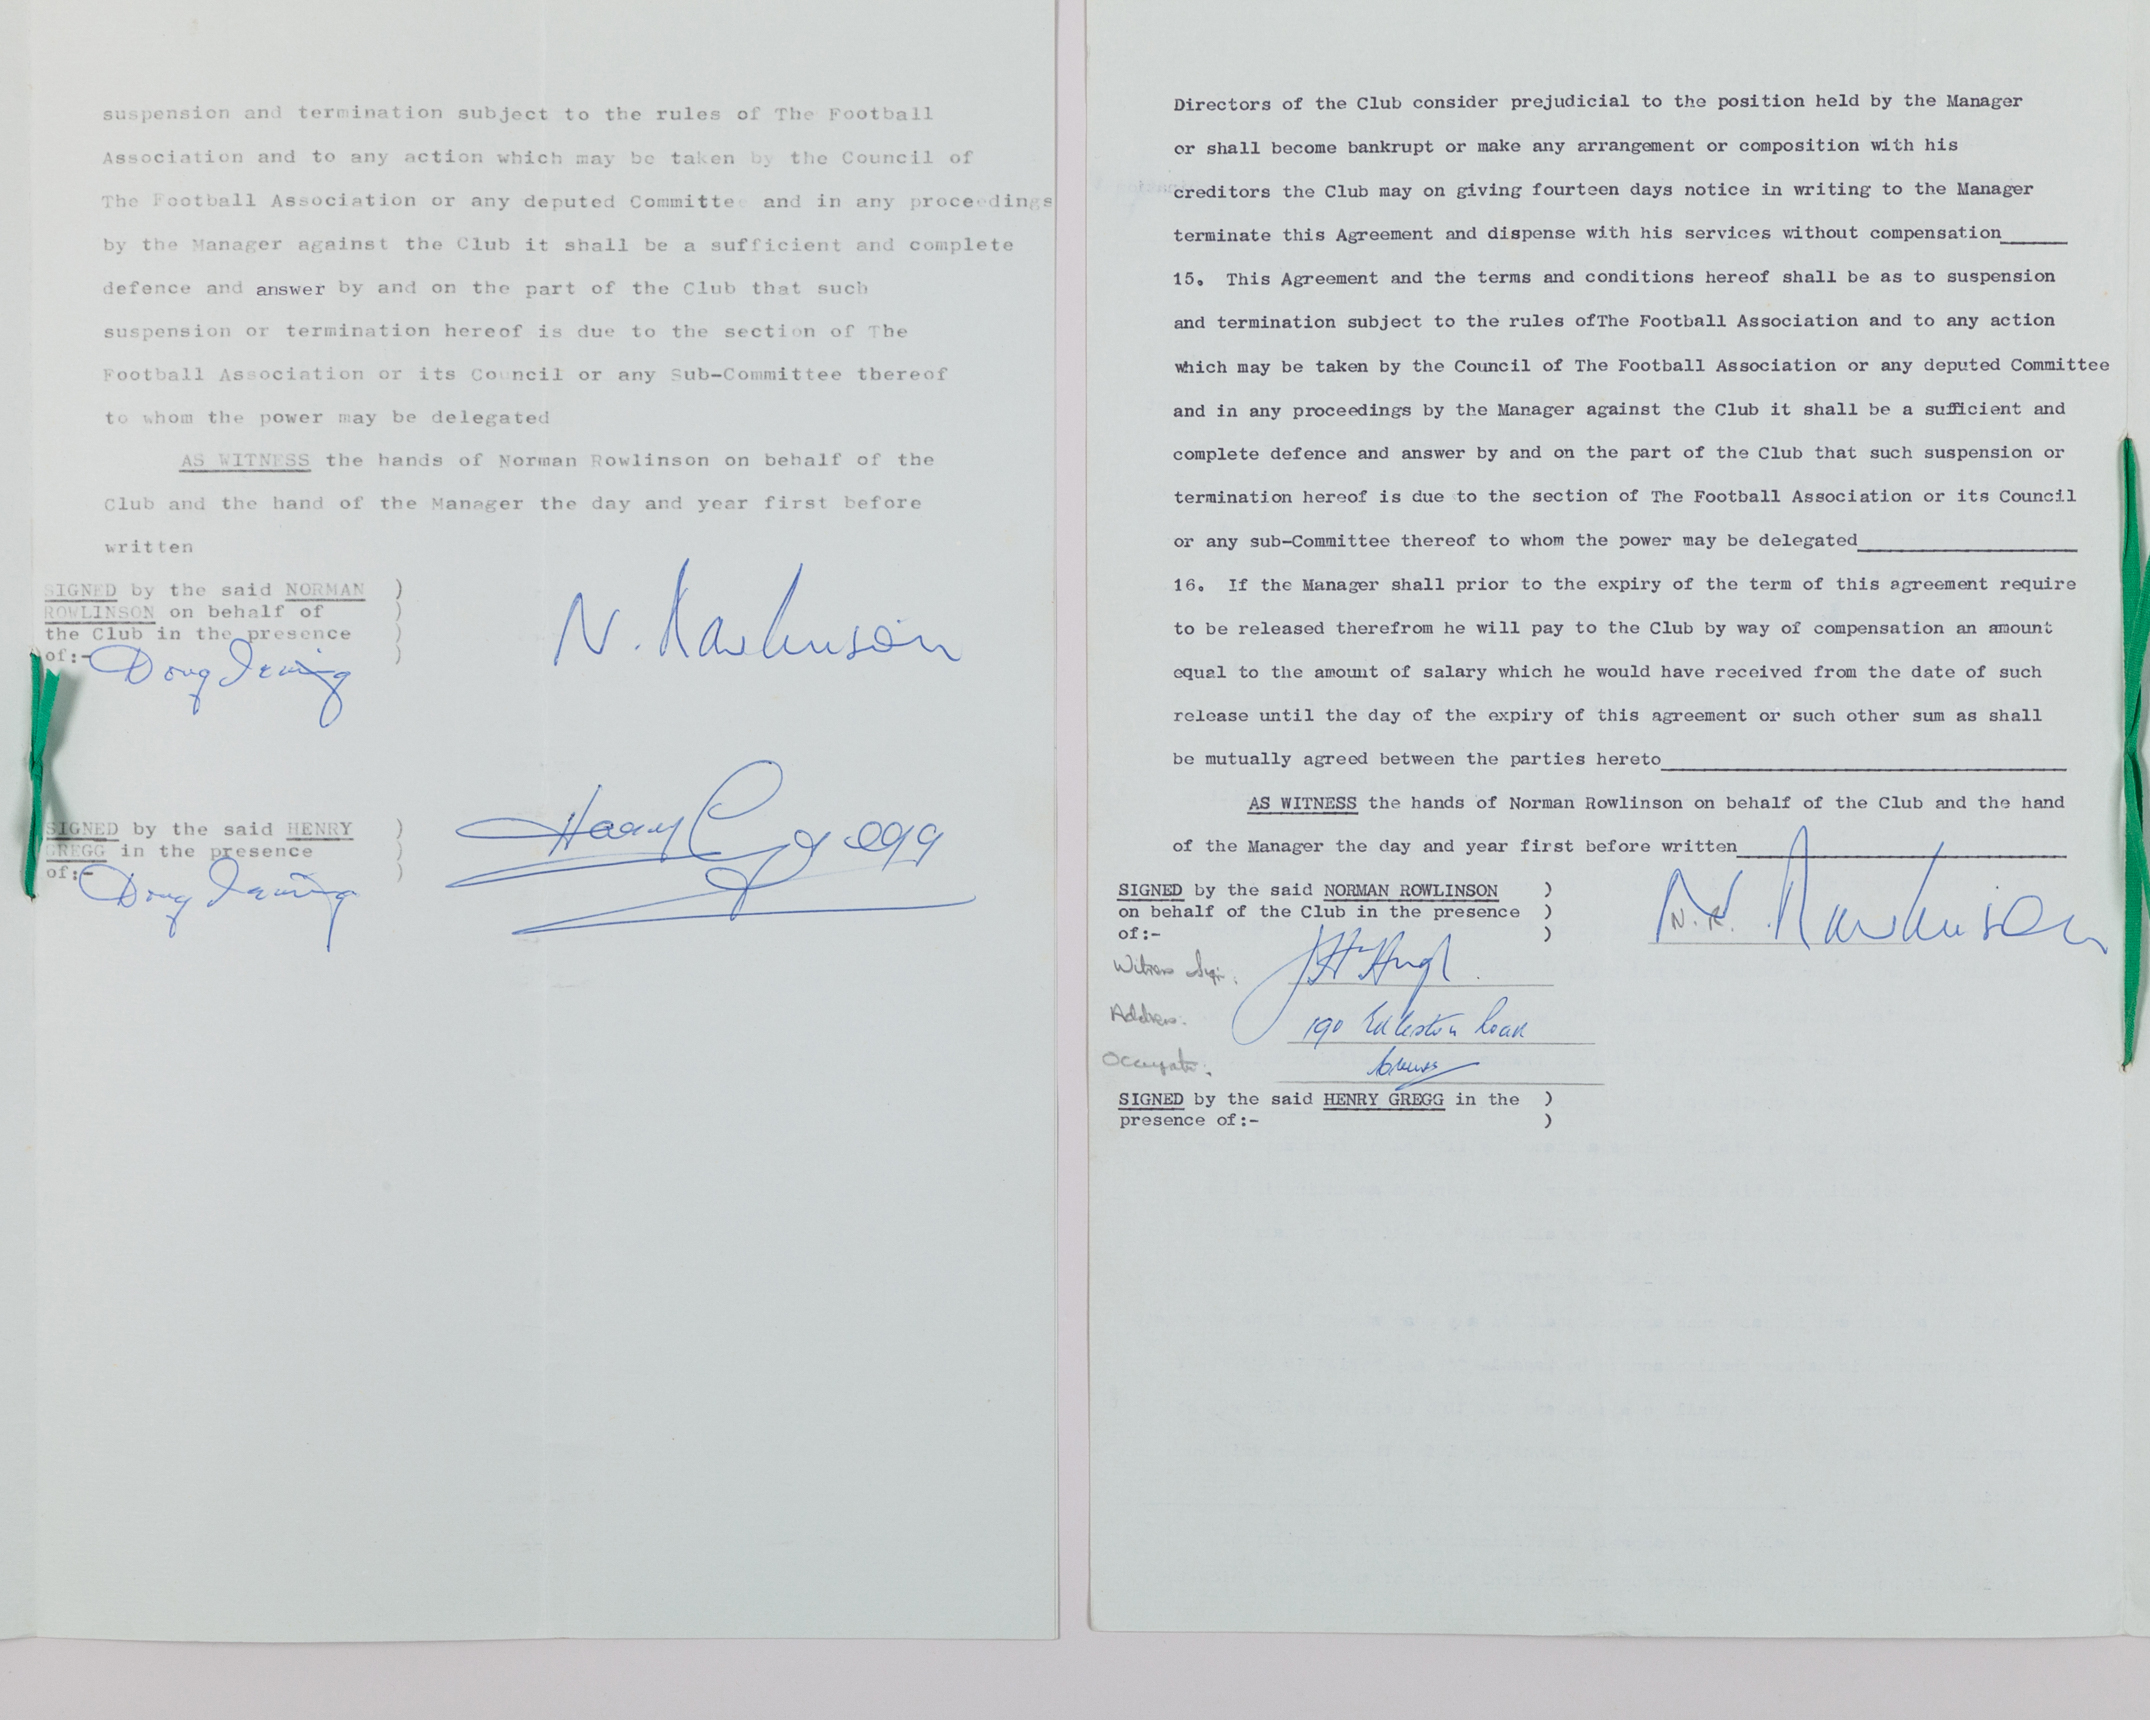 suspension and termination subject to the rules of The Football
Association and to any action which may be taken by the Council of
The Football Association or any deputed Committee and in any proceedings
by the Manager against the Club it shall be a sufficient and complete
defence and answer by and on the part of the Club that such
suspension or termination hereof is due to the section of The
Football Association or its Council or any Sub-Committee thereof
to whom the power may be delegated
AS WITNESS the hands of Norman Rowlinson on behalf of the
Club and the hand of the Manager the day and year first before
written
SIGNED by the said NORMAN )
ROWLINSON on behalf of )
the Club in the presence )
of:- )
Doug Irving
N. Rowlinson
SIGNED by the said HENRY )
GREGG in the presence )
of:- )
Doug Irving
Harry Gregg
Directors of the Club consider prejudicial to the position held by the Manager
or shall become bankrupt or make any arrangement or composition with his
creditors the Club may on giving fourteen days notice in writing to the Manager
terminate this Agreement and dispense with his services without compensation
15. This Agreement and the terms and conditions hereof shall be as to suspension
and termination subject to the rules ofThe Football Association and to any action
which may be taken by the Council of The Football Association or any deputed Committee
and in any proceedings by the Manager against the Club it shall be a sufficient and
complete defence and answer by and on the part of the Club that such suspension or
termination hereof is due to the section of The Football Association or its Council
or any sub-Committee thereof to whom the power may be delegated
16. If the Manager shall prior to the expiry of the term of this agreement require
to be released therefrom he will pay to the Club by way of compensation an amount
equal to the amount of salary which he would have received from the date of such
release until the day of the expiry of this agreement or such other sum as shall
be mutually agreed between the parties hereto
AS WITNESS the hands of Norman Rowlinson on behalf of the Club and the hand
of the Manager the day and year first before written
SIGNED by the said NORMAN ROWLINSON )
on behalf of the Club in the presence )
of:- )
N. R.
N. Rowlinson
Witness
Address:
190 Road
SIGNED by the said HENRY GREGG in the )
presence of:- )